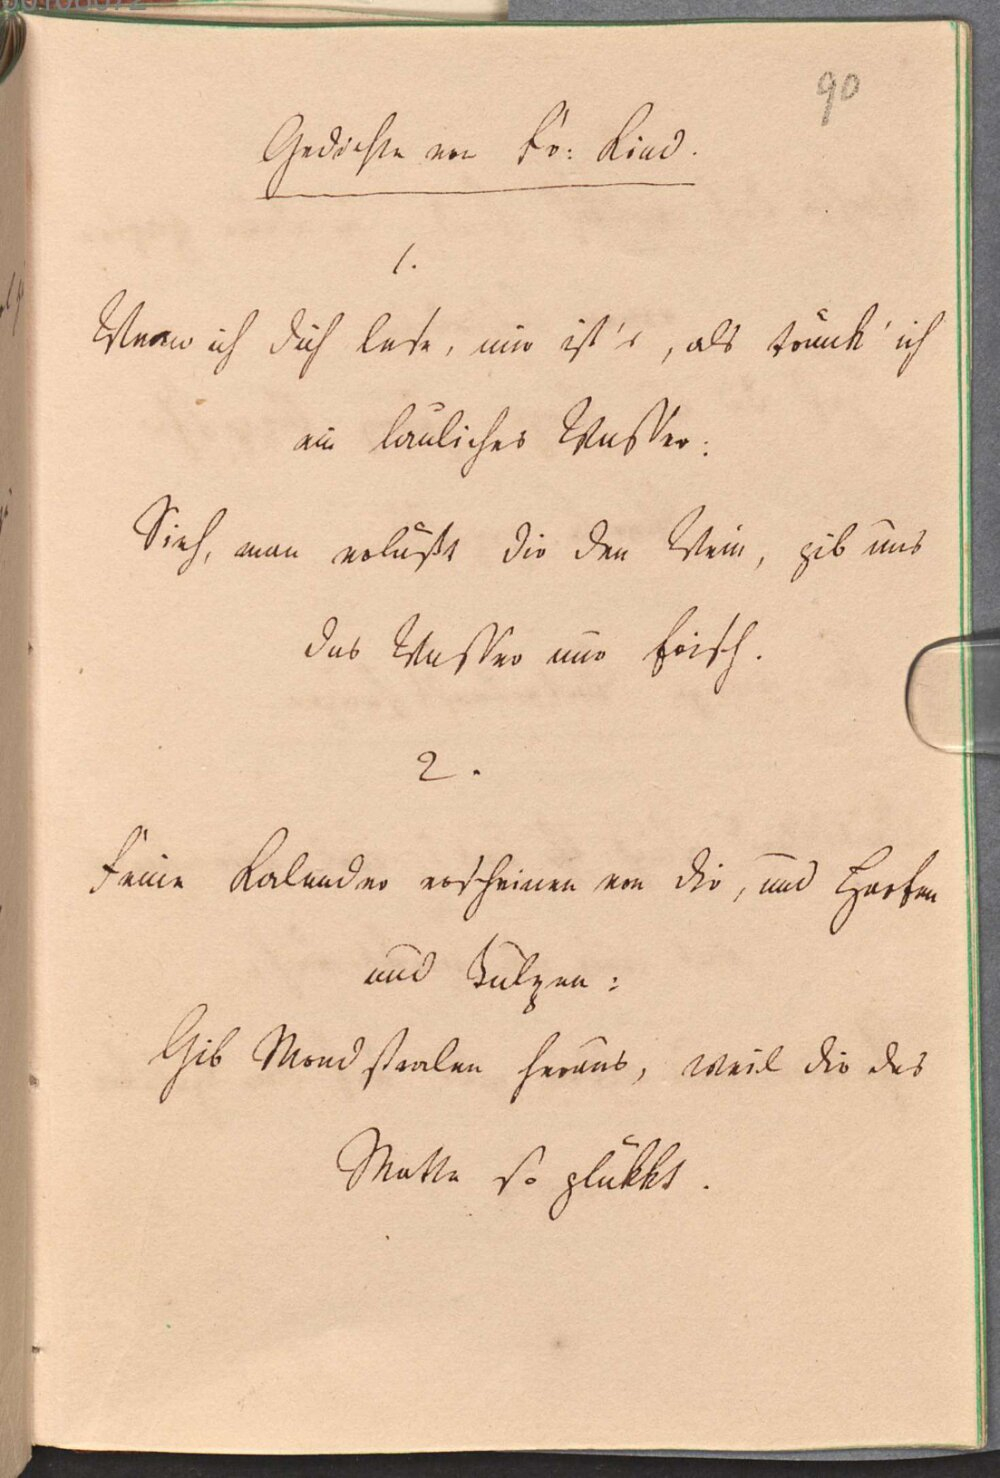 90
Gedichte von Fr: Kind.
1.
Wenn ich dich lese, mir ist's, als tränk' ich
ein lauliches Wasser:
Sieh, man erläßt dir den Wein, gib uns
das Wasser nur frisch.
2.
Feine Kalender erscheinen von dir, und Harfen
und Tulpen:
Gib Mondstralen heraus, weil dir das
Matte so glükkt.